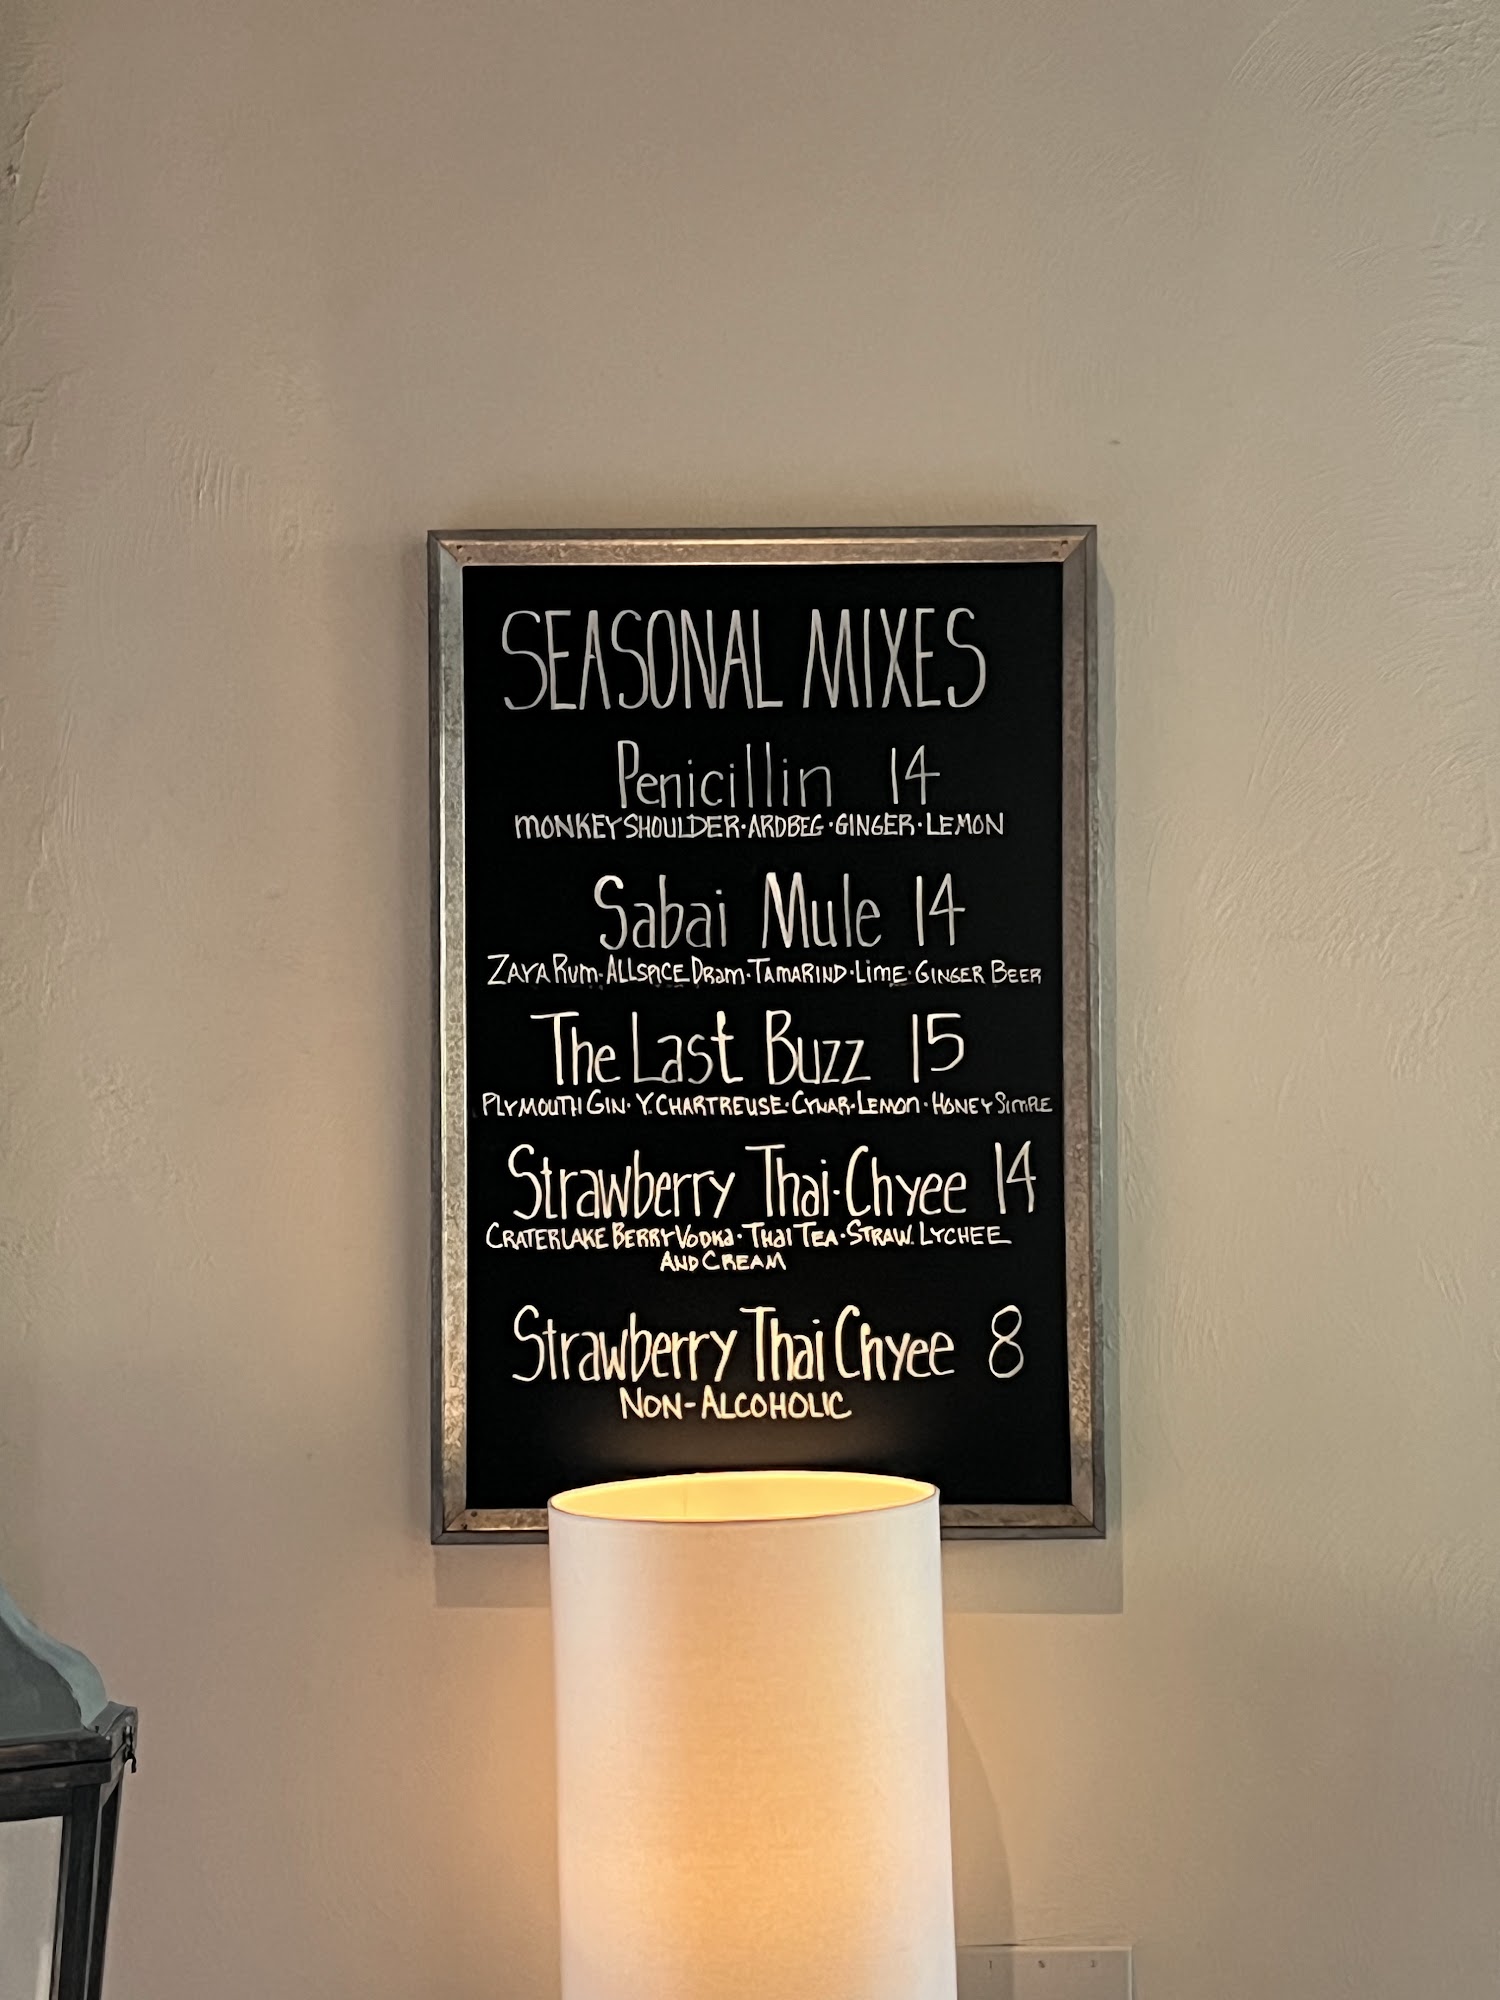 SEASONAL MIXES
Penicillin 14
MONKEY SHOULDER·ARDBEG·GINGER·LEMON
Sabai Mule 14
ZAYA RUM·ALLSPICE DRAM·TAMARIND·LIME·GINGER BEER
The Last Buzz 15
PLYMOUTH GIN·Y.CHARTREUSE·CYNAR·LEMON·HONEY SIMPLE
Strawberry Thai·Chyee 14
CRATERLAKE BERRY VODKA·THAI TEA·STRAW. LYCHEE
AND CREAM
Strawberry Thai Chyee 8
NON-ALCOHOLIC